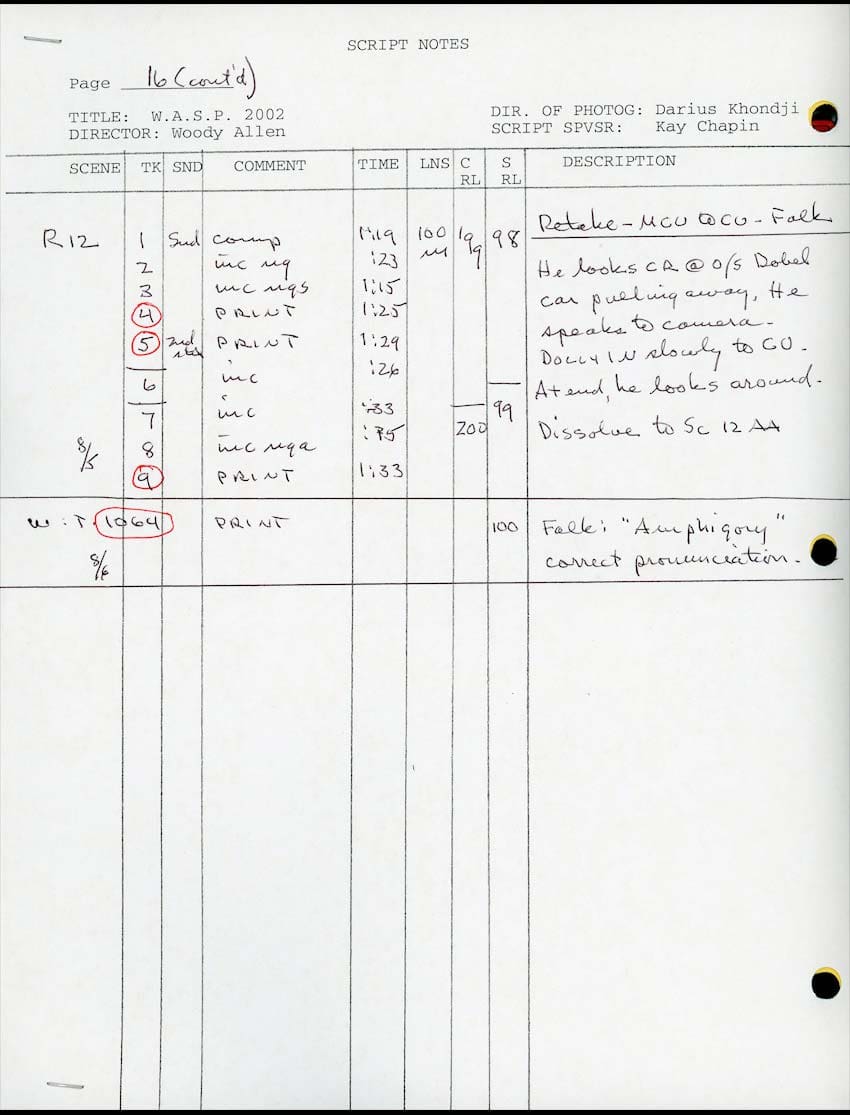 SCRIPT NOTES
Page 16 (cont'd)
TITLE: W.A.S.P. 2002
DIRECTOR: Woody Allen
DIR. OF PHOTOG: Darius Khondji
SCRIPT SPVSR: Kay Chapin
SCENE TK SND COMMENT TIME LNS C RL S RL DESCRIPTION
Retake - MCU @ CU - Falk
R12 1 Snd comp 1:19 100 m 199 98
2 inc ng :23
He looks CR @ O/S Dobel
3 inc ngs 1:15
car pulling away, He
4 PRINT 1:25
speaks to camera.
5 2nd stx PRINT 1:29
DOLLY IN slowly to CU.
6 inc :26
At end, he looks around.
7 inc :33 200 99
Dissolve to Sc 12 AA
8/5 8 inc nga
9 PRINT 1:33
W.T. 1064 PRINT 100 Falk: "Amphigory"
8/6 correct pronunciation.